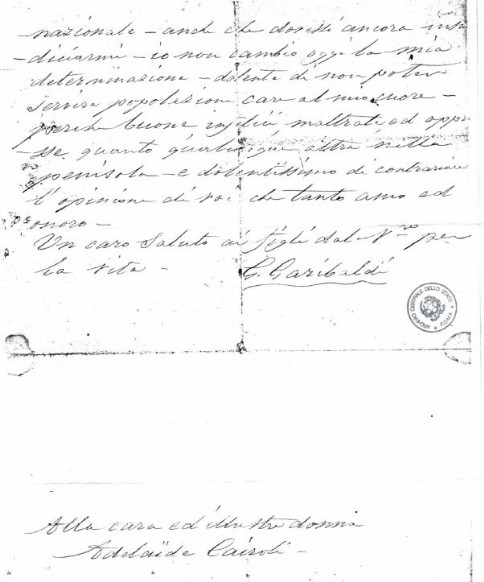 nazionale - anch che dovessi ancora
io non cambio oggi la mia
determinazione - dolente di non poter
servire popolazioni care al mio cuore -
perché buone infelici maltrate ed oppres
-se, quanto altra nella
penisola - e dolentissimo di contrariare
l'opinione di voi che tanto amo ed
onoro -
Un caro saluto ai figli dal V.ro per
la vita -
G. Garibaldi
CENTRALE DELLO STATO ROMA
Alla cara ed illustre donna
Adelaide Cairoli -